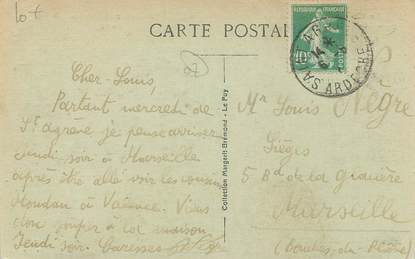 10 +
CARTE POSTALE
07
RÉPUBLIQUE FRANÇAISE
10
ARDÈCHE
Cher Louis,
Partant mercredi de
St Agrève je pense arriver
jeudi soir à Marseille
après être allé voir les cousins
à Valence. Viens
donc souper à la maison
Jeudi soir. Caresses
Collection Margerit-Brémond - Le Puy
Mr Louis Nègre
5 Bd de la
Marseille
(Bouches-du-Rhône)